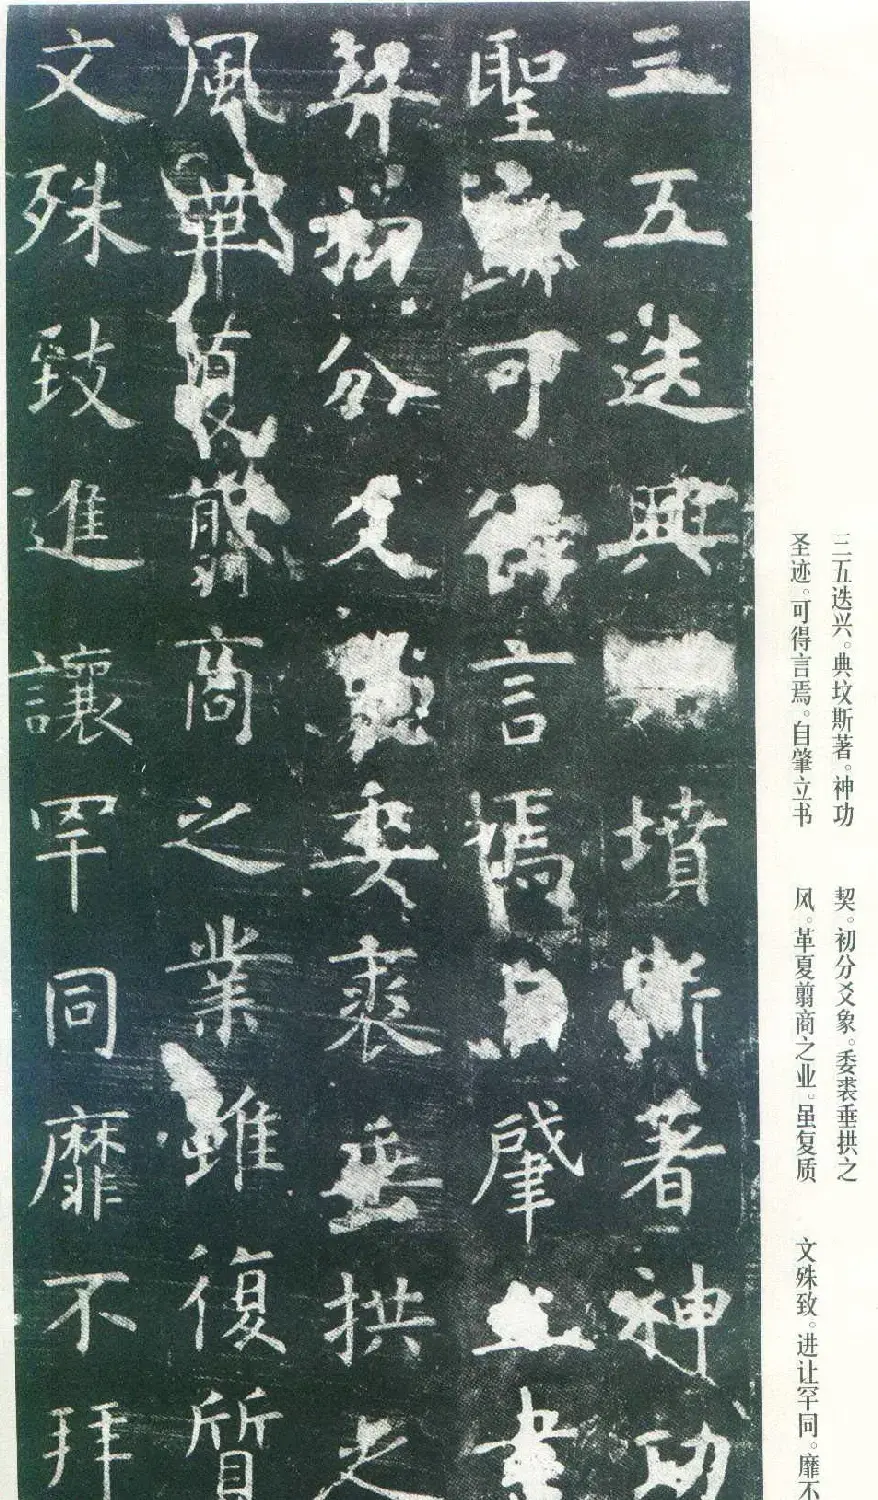 三五迭興墳斯著神功
聖可得言焉自肇立書
契初分爻象委裘垂拱之
風革夏翦商之業雖復質
文殊致進讓罕同靡不拜
三五迭兴。典坟斯著。神功
圣迹。可得言焉。自肇立书
契。初分爻象。委裘垂拱之
风。革夏翦商之业。虽复质
文殊致。进让罕同。靡不